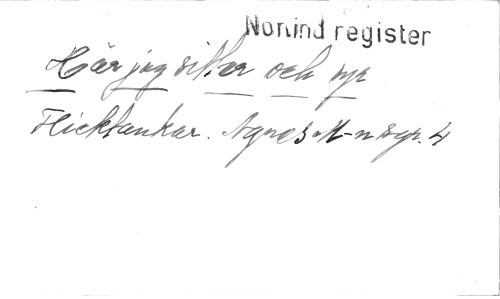 Norlind register
Här jag sitter och syr
Flicktankar. Agnes M-n syr. 4